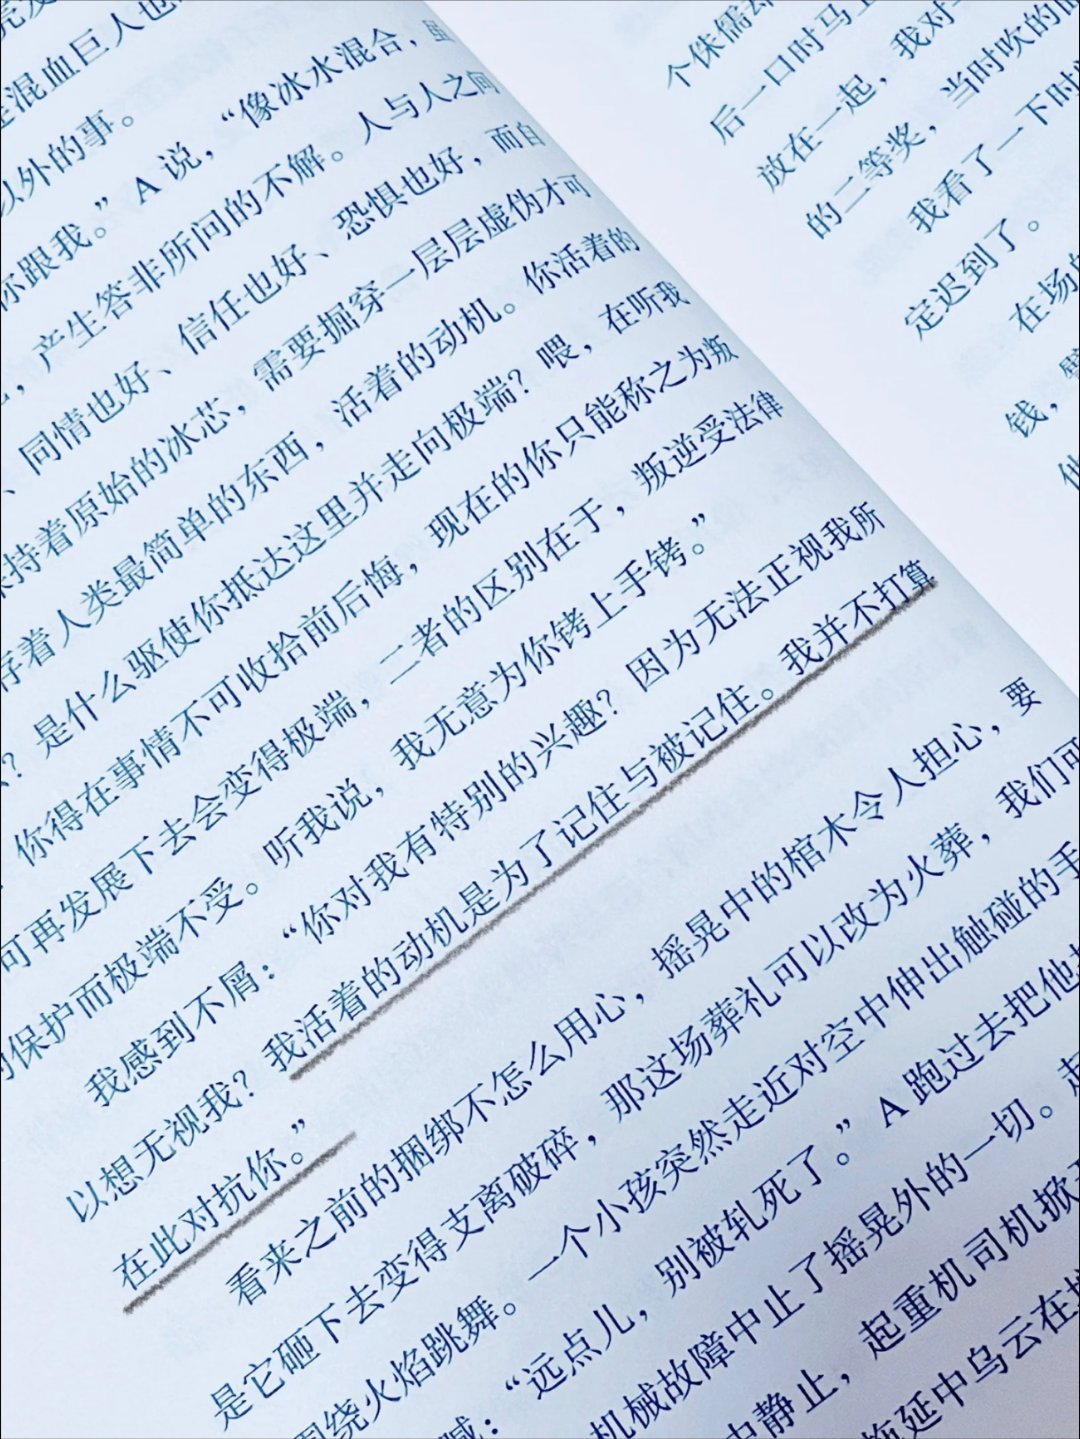 混血巨人也
以外的事。
你跟我。”A 说，“像冰水混合，虽
，产生答非所问的不解。人与人之间
、同情也好、信任也好、恐惧也好，而自
保持着原始的冰芯，需要掘穿一层层虚伪才可
存着人类最简单的东西，活着的动机。你活着的
？是什么驱使你抵达这里并走向极端？喂，在听我
你得在事情不可收拾前后悔，现在的你只能称之为叛
可再发展下去会变得极端，二者的区别在于，叛逆受法律
的保护而极端不受。听我说，我无意为你铐上手铐。”
我感到不屑：“你对我有特别的兴趣？因为无法正视我所
以想无视我？我活着的动机是为了记住与被记住。我并不打算
在此对抗你。”
看来之前的捆绑不怎么用心，摇晃中的棺木令人担心，要
是它砸下去变得支离破碎，那这场葬礼可以改为火葬，我们可
围绕火焰跳舞。一个小孩突然走近对空中伸出触碰的手
喊：“远点儿，别被轧死了。”A 跑过去把他
机械故障中止了摇晃外的一切。起
中静止，起重机司机掀
拖延中乌云在
个侏儒
后一口时马上
放在一起，我对
的二等奖，当时吹的
我看了一下时
定迟到了。
在场的
钱，
他